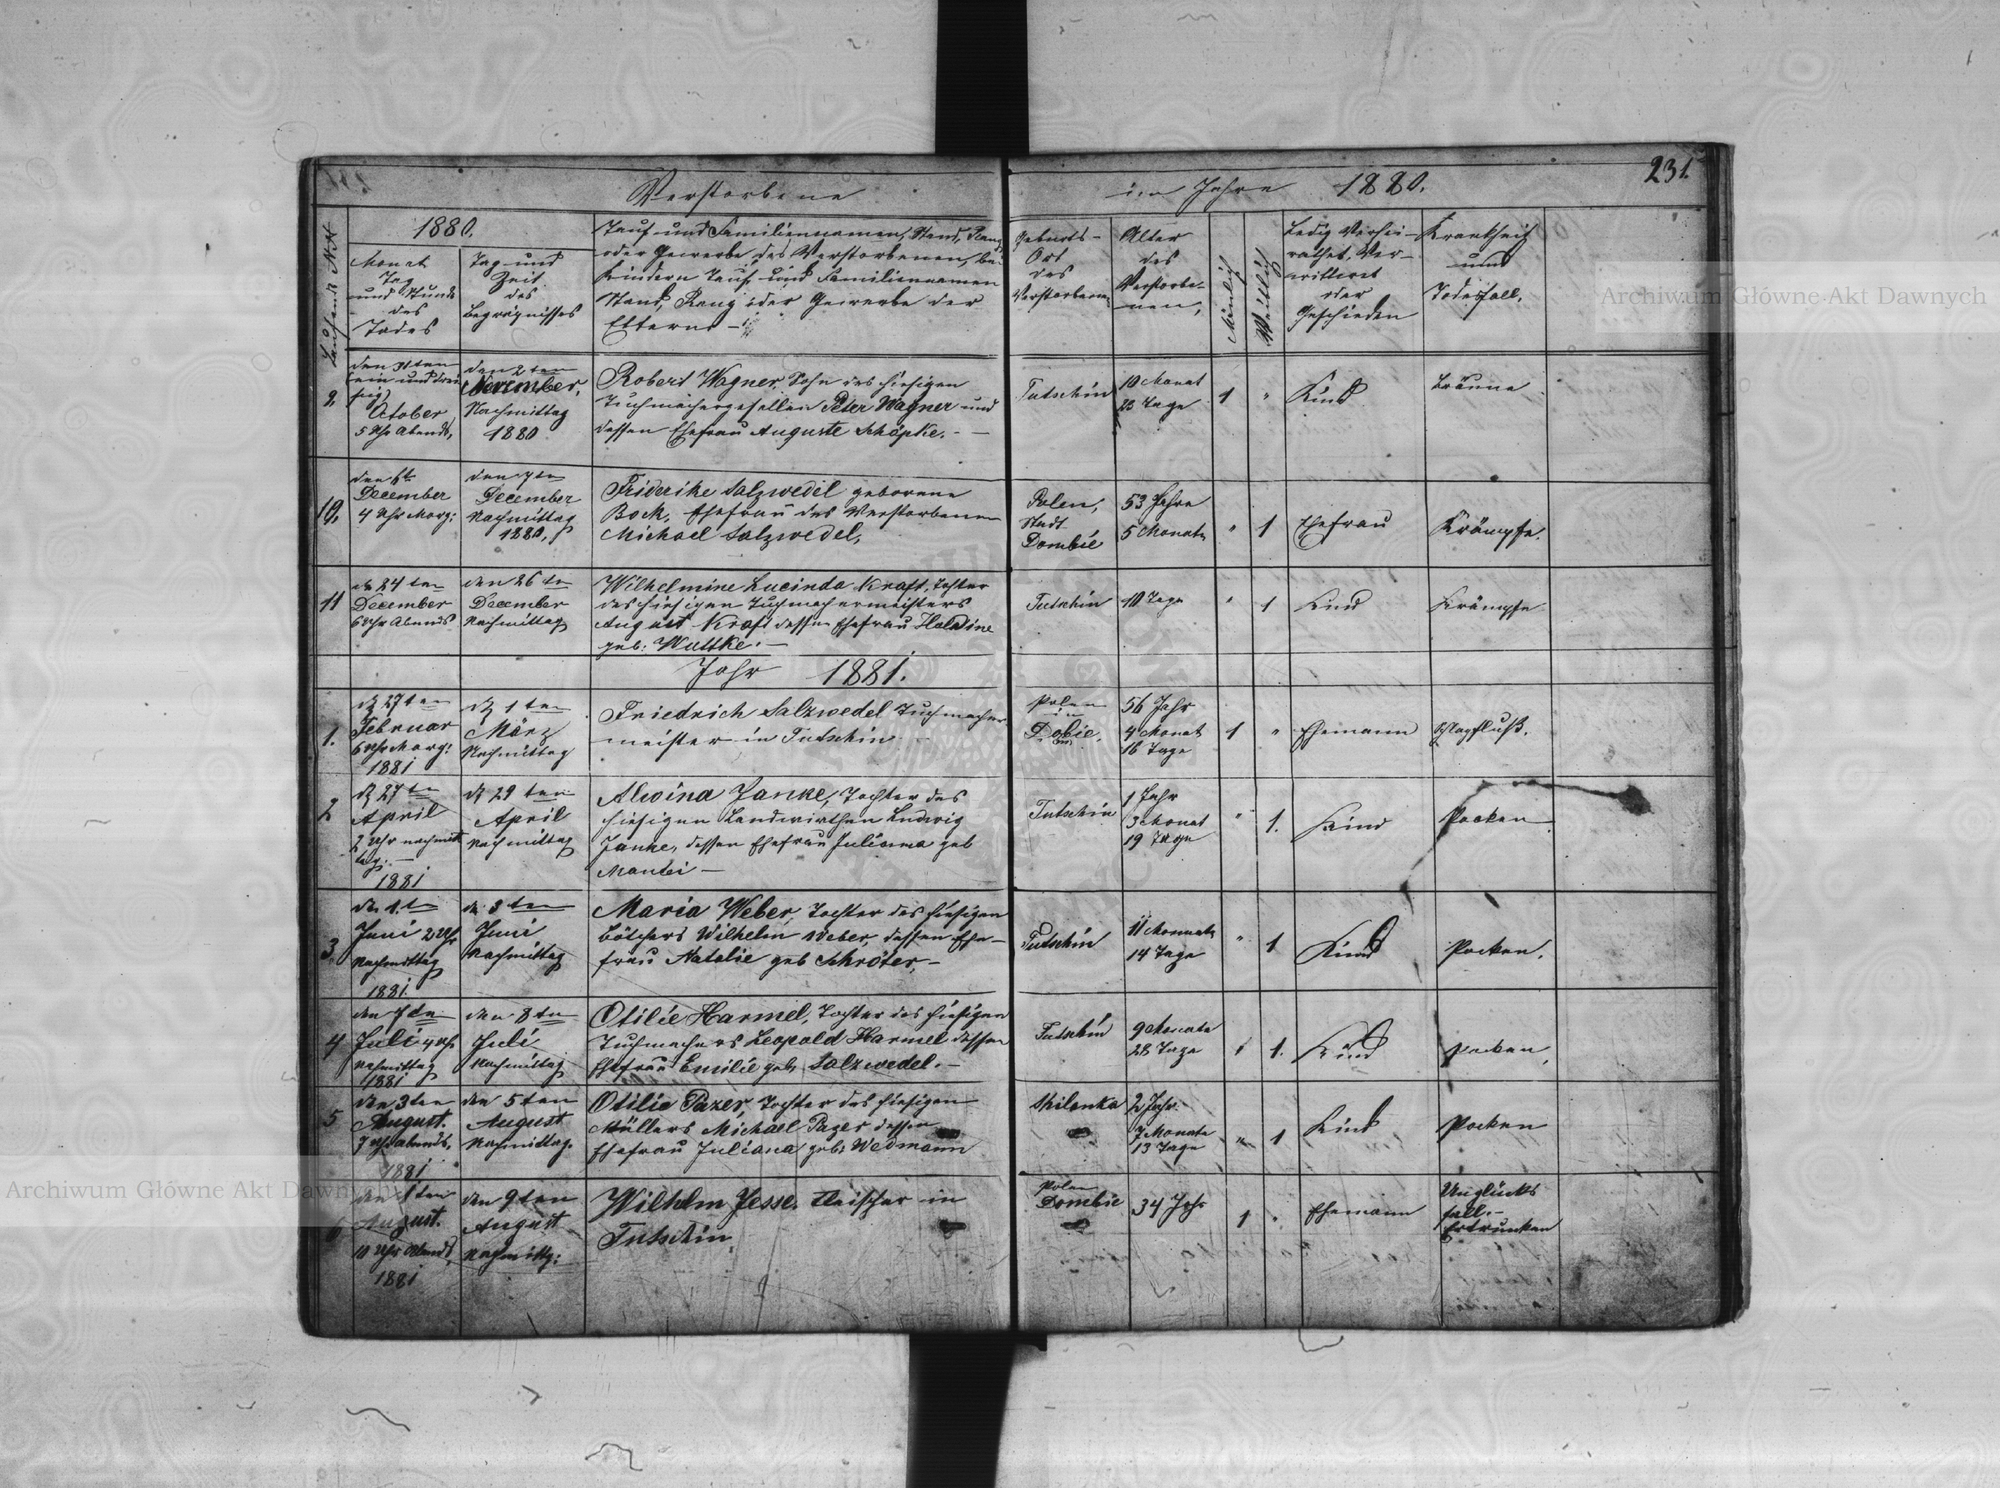 231.
Verstorbene im Jahre 1880.
Laufende N.N.
1880.
Monat
Tag
und Stunde
des
Todes
Tag und
Zeit
des
Begräbnisses
Tauf und Familiennamen, Stand, Rang
oder Gewerbe des Verstorbenen, bei
Kindern Tauf und Familiennamen
Stand, Rang oder Gewerbe der
Eltern
Geburts-
Ort
des
Verstorbenen
Alter
des
Verstorbe-
nen,
Mänlich
Weiblich
Ledig Verhei-
rathet, Ver-
wittwet
oder
Geschieden
Krankheit
und
Todesfall.
9.
den 31ten
(ein und drei
sig)
October
5 Uhr Abends,
den 2ten
November,
Nachmittag
1880
Robert Wagner, Sohn des hiesigen
Tuchmachergesellen Peter Wagner und
dessen Ehefrau Auguste Schöpke.
Tutschin
10 Monat
23 Tage
1
"
Kind
Bräune
10.
den 6ten
December
4 Uhr Morg:
den 7ten
December
Nachmittag
1880,
Friderike Salzwedel geborene
Bock, Ehefrau des Verstorbenen
Michael Salzwedel,
Polen,
Stadt
Dombie
53 Jahre
5 Monate
"
1
Ehefrau
Krämpfe.
11
den 24ten
December
6 Uhr Abends
den 26ten
December
Nachmittag
Wilhelmine Lucinda Kraft, Tochter
des hiesigen Tuchmachermeisters
August Kraft dessen Ehefrau
geb: Wuttke.
Tutschin
10 Tage
"
1
Kind
Krämpfe
Jahr 1881.
1.
27ten
Februar
6 Uhr Morg:
1881
1ten
März
Nachmittag
Friedrich Salzwedel Tuchmacher
meister in Tutschin
Polen
in
Dobie.
56 Jahr
4 Monat
16 Tage
1
"
Ehemann
Schlagfluß.
2
27ten
April
2 Uhr nachmit
tag.
1881
29ten
April
Nachmittag
Alwina Janke, Tochter des
hiesigen Landwirthen Ludwig
Janke, dessen Ehefrau Juliana geb
Mantei
Tutschin
1 Jahr
3 Monat
19 Tage
"
1.
Kind
Pocken.
3.
den 1.ten
Juni 2 Uhr
Nachmittag
1881.
den 3ten
Juni
Nachmittag
Maria Weber, Tochter des hiesigen
Bötchers Wilhelm Weber, dessen Ehe-
frau Natalie geb Schröter,
Tutschin
11 Monate
14 Tage
"
1
Kind
Pocken.
4
den 7ten
Juli 4 Uhr
Nachmittag
1881
den 8ten
Juli
Nachmittag
Otilie Harmel, Tochter des hiesigen
Tuchmachers Leopold Harmel dessen
Ehefrau Emilie geb. Salzwedel.
Tutschin
9 Monate
28 Tage
1.
Kind
Pocken,
5
den 3ten
August.
7 Uhr Abends,
1881
den 5ten
August
Nachmittag.
Otilie Pazer, Tochter des hiesigen
Müllers Michael Pazer dessen
Ehefrau Juliana geb: Wedmann
2 Jahr.
7 Monate
13 Tage
"
1
Kind
Pocken
6
den 1ten
August.
10 Uhr Abends,
1881
den 9ten
August
Nachmittg:
Wilhelm Jesse, Fleischer in
Tutschin,
Polen
Dombie
34 Jahr
1
"
Ehemann
Unglücks
fall.
Ertrunken
Archiwum Główne Akt Dawnych
Archiwum Główne Akt Dawnych